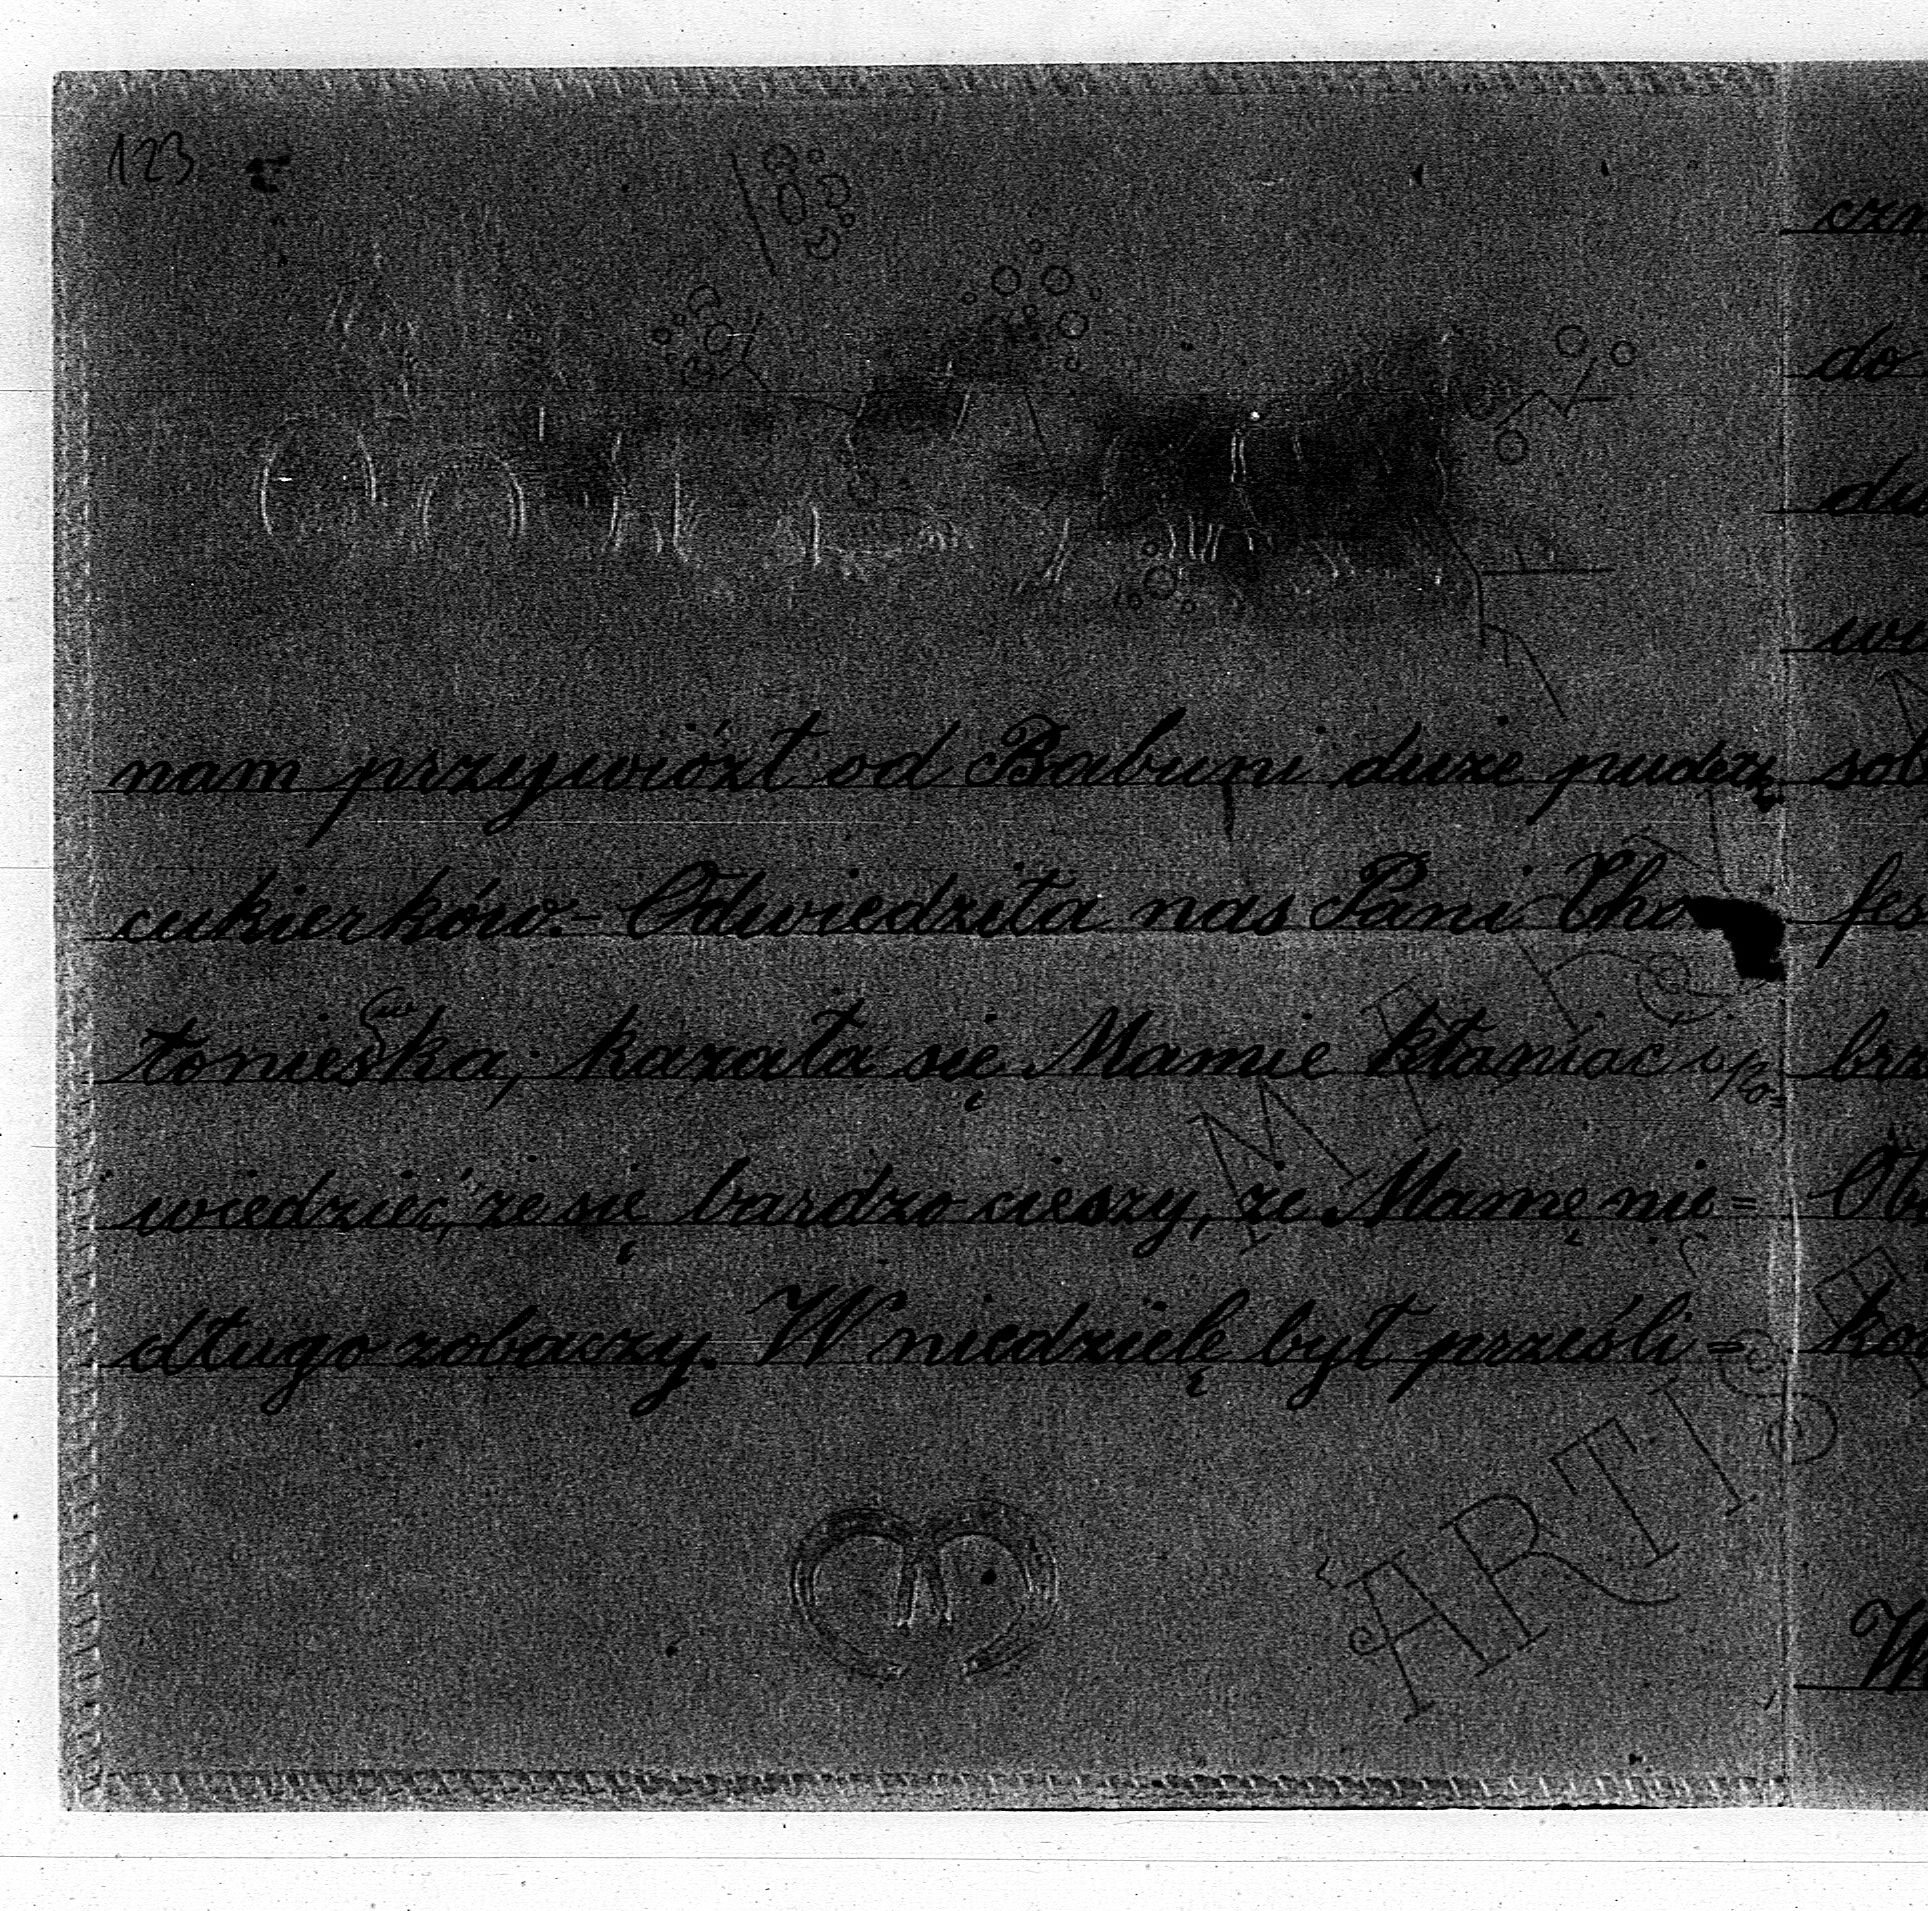 123.
nam przywiózł od Babuni duże pudełk
cukierków.- Odwiedziła nas Pani Cho
łoniewska, kazała się Mamie kłaniać i po=
wiedzieć, że się bardzo cieszy, że Mamę nie=
długo zobaczy. W niedzielę był prześli=
do
W
ARTI